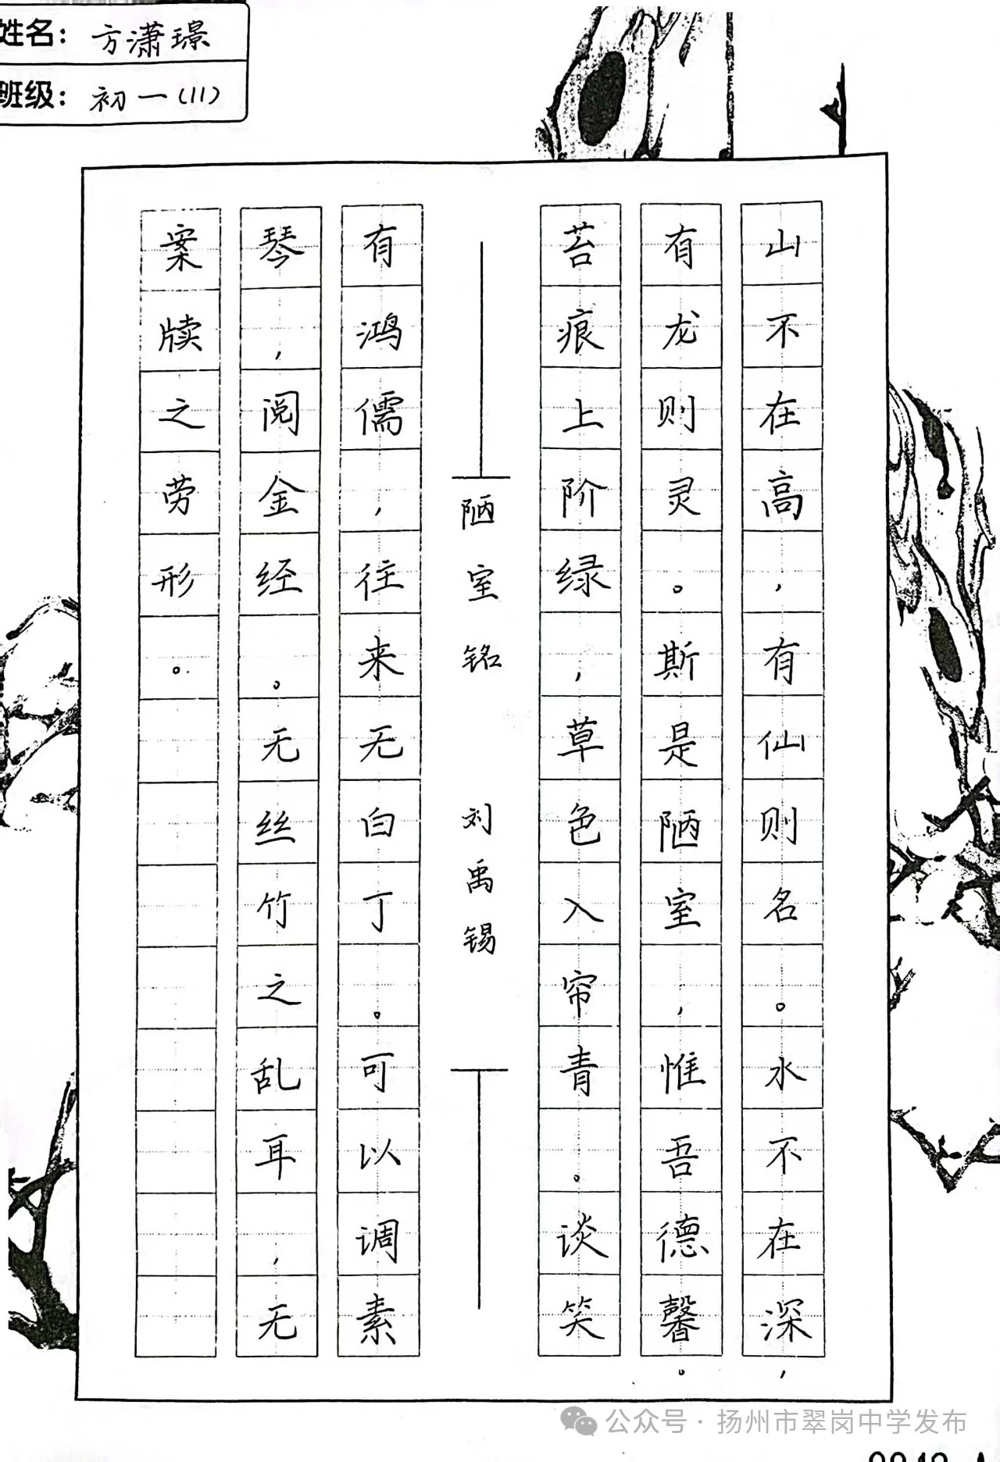 姓名：方潇璟
班级：初一（11）
山不在高，有仙则名。水不在深，
有龙则灵。斯是陋室，惟吾德馨。
苔痕上阶绿，草色入帘青。谈笑
陋室铭 刘禹锡
有鸿儒，往来无白丁。可以调素
琴，阅金经。无丝竹之乱耳，无
案牍之劳形。
公众号·扬州市翠岗中学发布